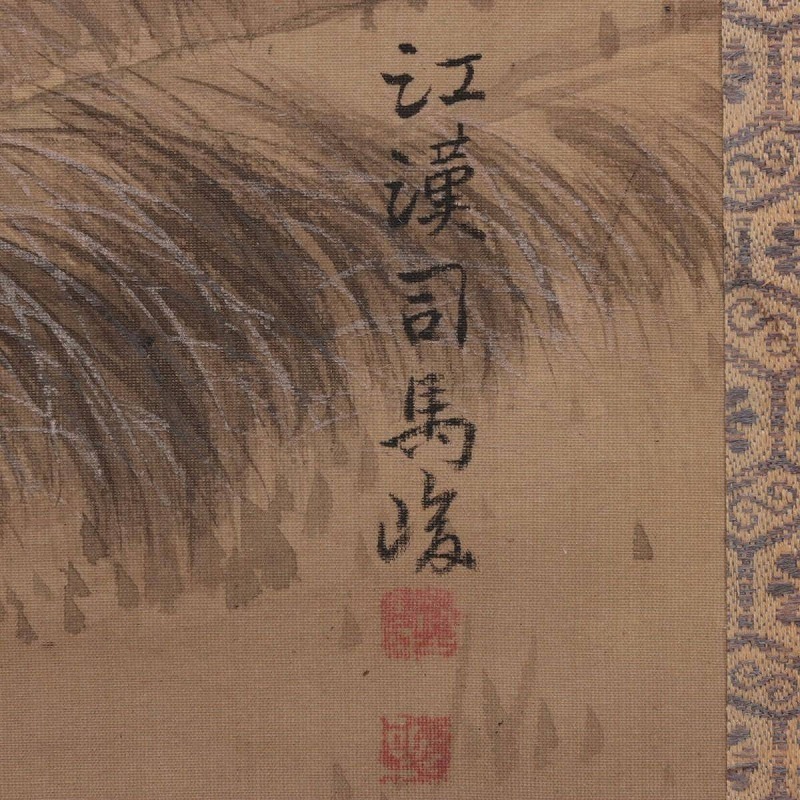 江漢司馬峻